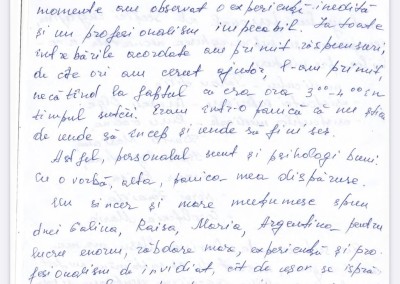 momente am observat o experiență inedită
și un profesionalism impecabil. La toate
întrebările acordate am primit răspunsuri,
de câte ori am cerut ajutor, l-am primit,
necătînd la faptul că era ora 3⁰⁰-4⁰⁰ în
timpul nopții. Eram într-o panică că nu știa
de unde să încep și unde să finisez.
Astfel, personalul sunt și psihologi buni.
Cu o vorbă, alta, panica mea dispăruse.
Un sincer și mare mulțumesc spun
dnei Galina, Raisa, Maria, Argentina pentru
lucru enorm, răbdare mare, experiență și pro-
fesionalism de invidiat, cât de ușor se ispră